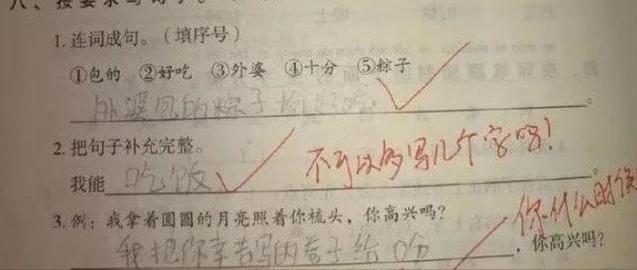 八、按要求写句子。
1. 连词成句。（填序号）
①包的 ②好吃 ③外婆 ④十分 ⑤粽子
外婆包的粽子十分好吃。
2. 把句子补充完整。
我能吃饭。
不可以多写几个字吗！
3. 例：我拿着圆圆的月亮照着你梳头，你高兴吗？
你什么时候
我把你辛苦写的卷子给吃，你高兴吗？